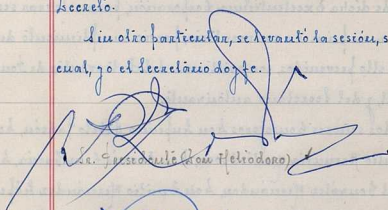 Decreto.
Sin otro particular, se levantó la sesión, s
cual, yo el Secretario doy fe.
Presidente (Don Heliodoro)